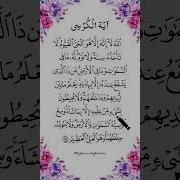 آيَةُ الْكُرْسِي
اللَّهُ لَا إِلَٰهَ إِلَّا هُوَ الْحَيُّ الْقَيُّومُ لَا
تَأْخُذُهُ سِنَةٌ وَلَا نَوْمٌ لَهُ مَا فِي
السَّمَٰوَٰتِ وَمَا فِي الْأَرْضِ مَنْ ذَا الَّذِي
يَشْفَعُ عِنْدَهُ إِلَّا بِإِذْنِهِ يَعْلَمُ مَا بَيْنَ
أَيْدِيهِمْ وَمَا خَلْفَهُمْ وَلَا يُحِيطُونَ
بِشَيْءٍ مِنْ عِلْمِهِ إِلَّا بِمَا شَاءَ وَسِعَ
كُرْسِيُّهُ السَّمَٰوَٰتِ وَالْأَرْضَ وَلَا يَئُودُهُ
حِفْظُهُمَا وَهُوَ الْعَلِيُّ الْعَظِيمُ